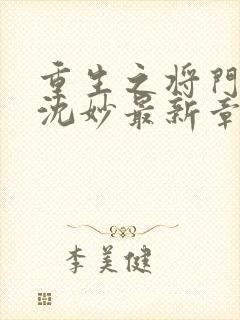 重生之将門
沈妙最新章
李美健